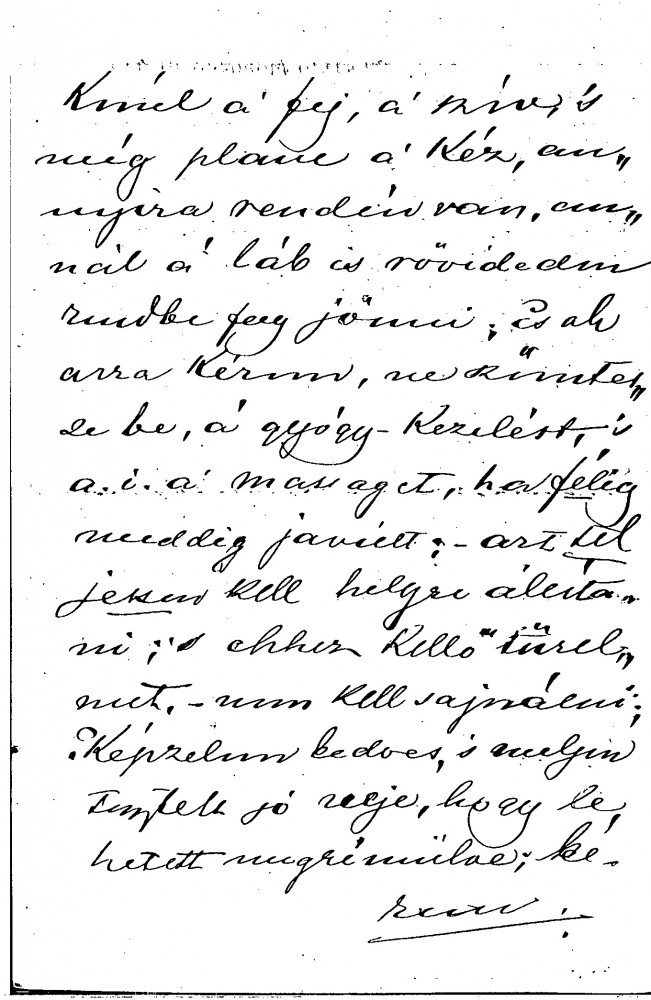 Kinél á fej, á szív, s
még pláne á Kéz, an„
nyira rendén van, an„
nál á láb is rövidedén
rendbe fog jönni; csak
arra Kérem, ne szüntes„
se be, á gyógy-Kezelést, s
a. i. a massaget, ha félig
meddig javúlt; – azt tel
jesen kell helyre állíta„
ni; s ehhez Kellő türel„
met, – nem kell sajnálni;
Képzelem kedves, s mélyen
tisztelt jó neje, hogy le„
hetett megrémülve; ké-
rem: